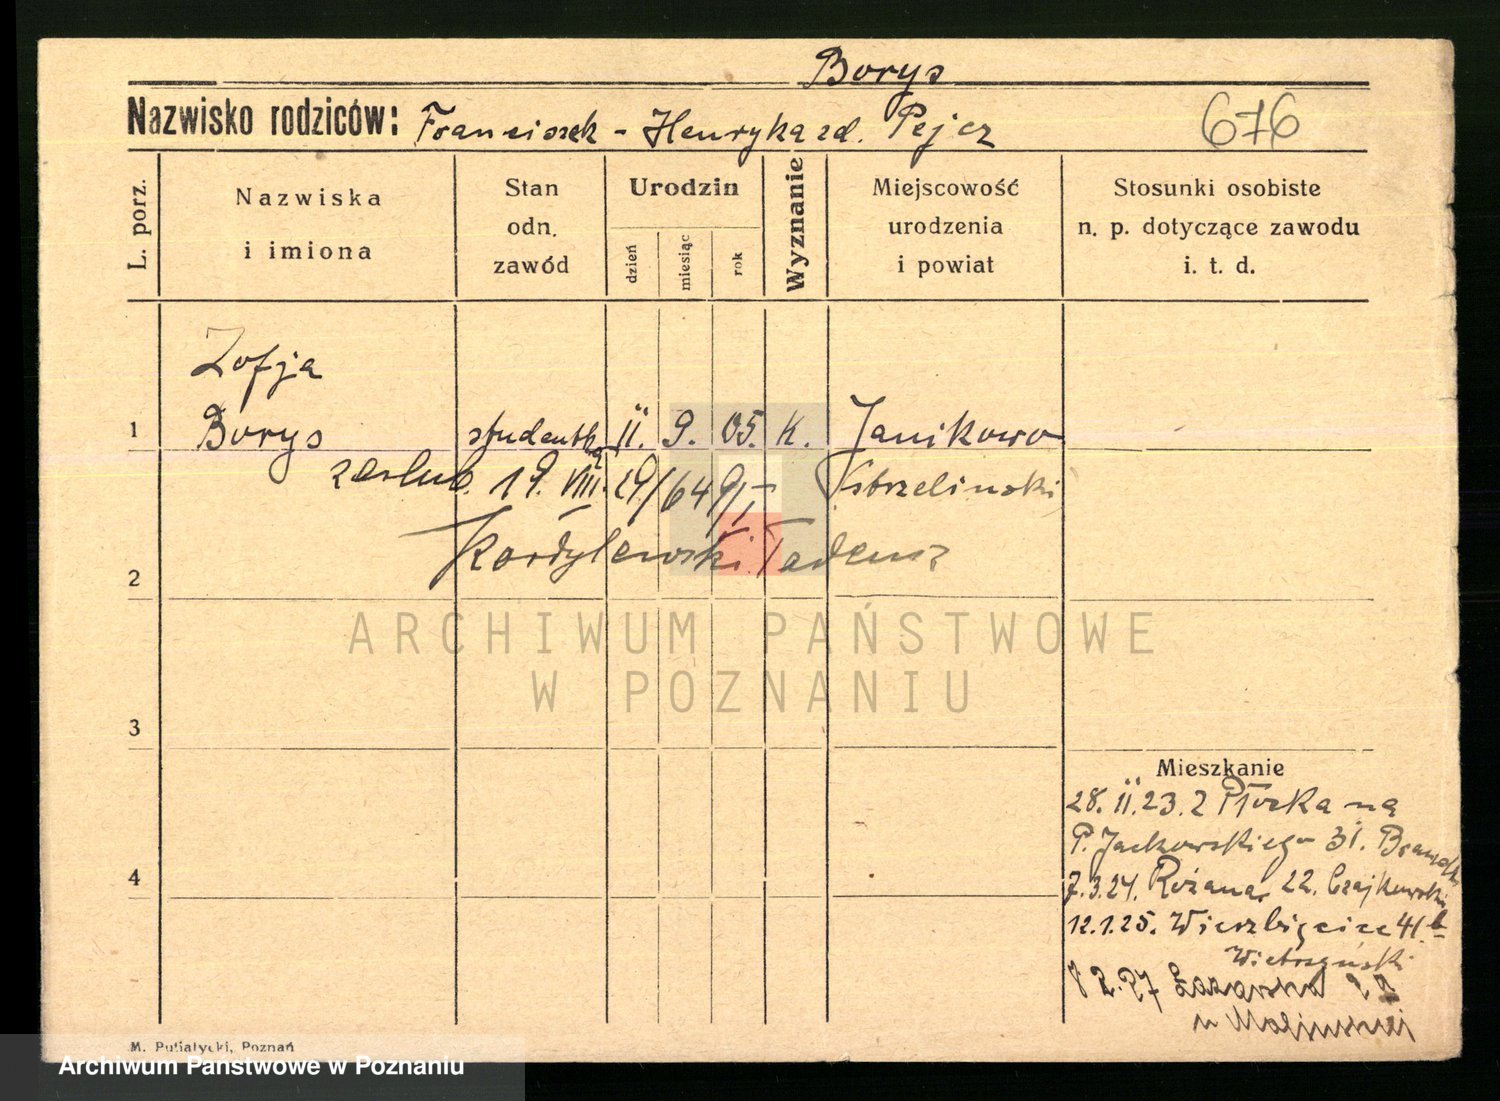 Borys
Nazwisko rodziców: Franciszek - Henryka zd. Pejcz
676
L. porz.
Nazwiska
i imiona
Stan
odn.
zawód
Urodzin
dzień
miesiąc
rok
Wyznanie
Miejscowość
urodzenia
i powiat
Stosunki osobiste
n. p. dotyczące zawodu
i. t. d.
Zofja
1 Borys studentka II. 9. 05. K. Janikowo
zaślub. 19. VIII. 29/649/I Strzeliński
Kordylewski Tadeusz
2
ARCHIWUM PAŃSTWOWE
W POZNANIU
3
Mieszkanie
28. II. 23. z Płocka na
P. Jackowskiego 31.
4
7.3.24. Różana 22. Czajkowski
12.1.25. Wierzbięcice 41b
Wietrzyński
8 2. 27 Łazarska
u Malińskiej
M. Putiatycki, Poznań
Archiwum Państwowe w Poznaniu